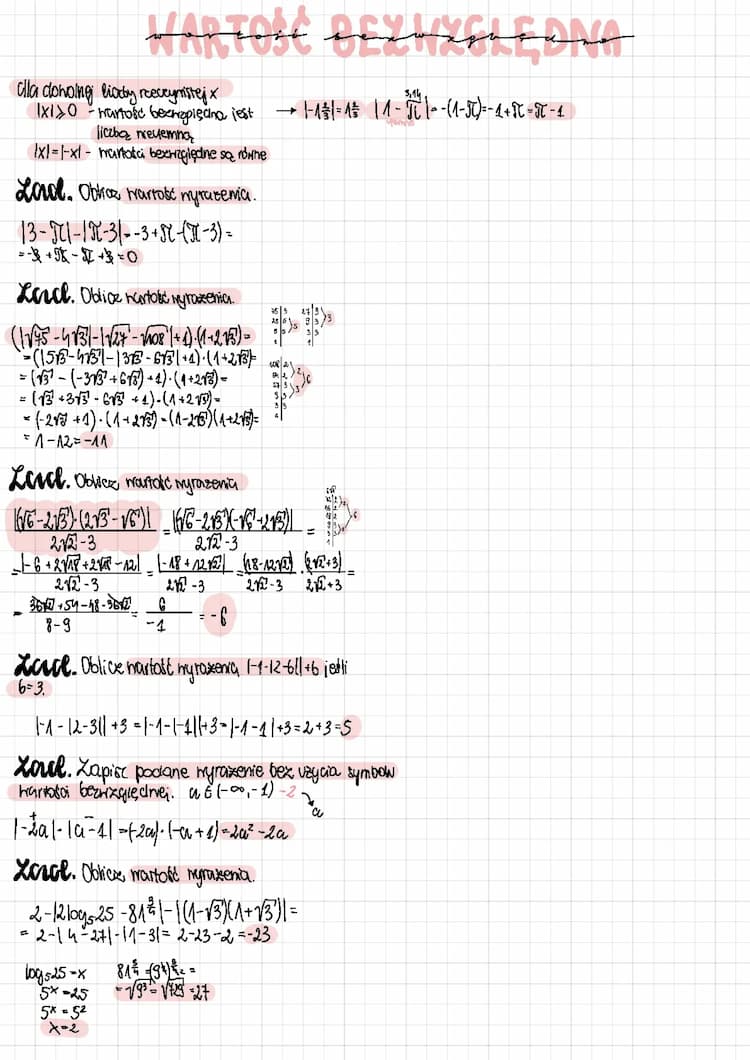 WARTOŚĆ BEZWZGLĘDNA
wartość bezwzględna
dla dowolnej liczby rzeczywistej x
|x|⩾0 - wartość bezwzględna jest liczbą nieujemną
→ |-1⅔|=1⅔ |1-π|=-(1-π)=-1+π=π-1
3,14
|x|=|-x| - wartości bezwzględne są równe
Zad. Oblicz wartość wyrażenia.
|3-π|-|π-3|=-3+π-(π-3)=
=-3+π-π+3=0
Zad. Oblicz wartość wyrażenia.
(|√75-4√3|-|√27-√108|+1)·(1+2√3)=
=(|5√3-4√3|-|3√3-6√3|+1)·(1+2√3)=
=(√3-(-3√3+6√3)+1)·(1+2√3)=
=(√3+3√3-6√3+1)·(1+2√3)=
=(-2√3+1)·(1+2√3)=(1-2√3)(1+2√3)=
=1-12=-11
Zad. Oblicz wartość wyrażenia
|(√6-2√3)·(2√3-√6)| / 2√2-3 = |(√6-2√3)(-√6+2√3)| / 2√2-3 =
=|-6+2√18+2√18-12| / 2√2-3 = |-18+12√2| / 2√2-3 = (18-12√2) / 2√2-3 · (2√2+3) / 2√2+3 =
= 36√2+54-48-36√2 / 8-9 = 6 / -1 = -6
Zad. Oblicz wartość wyrażenia |-1-|2-b||+b jeśli
b=3.
|-1-|2-3||+3=|-1-|-1||+3=|-1-1|+3=2+3=5
Zad. Zapisz podane wyrażenie bez użycia symbolu
wartości bezwzględnej. a∈(-∞,-1) -2 → a
|-2a|·|a-1|=(-2a)·(-a+1)=2a²-2a
+ -
Zad. Oblicz wartość wyrażenia.
2-|2log₅25-81^¾|-|(1-√3)(1+√3)|=
=2-|4-27|-|1-3|=2-23-2=-23
log₅25=x
5ˣ=25
5ˣ=5²
x=2
=√9³=√729=27